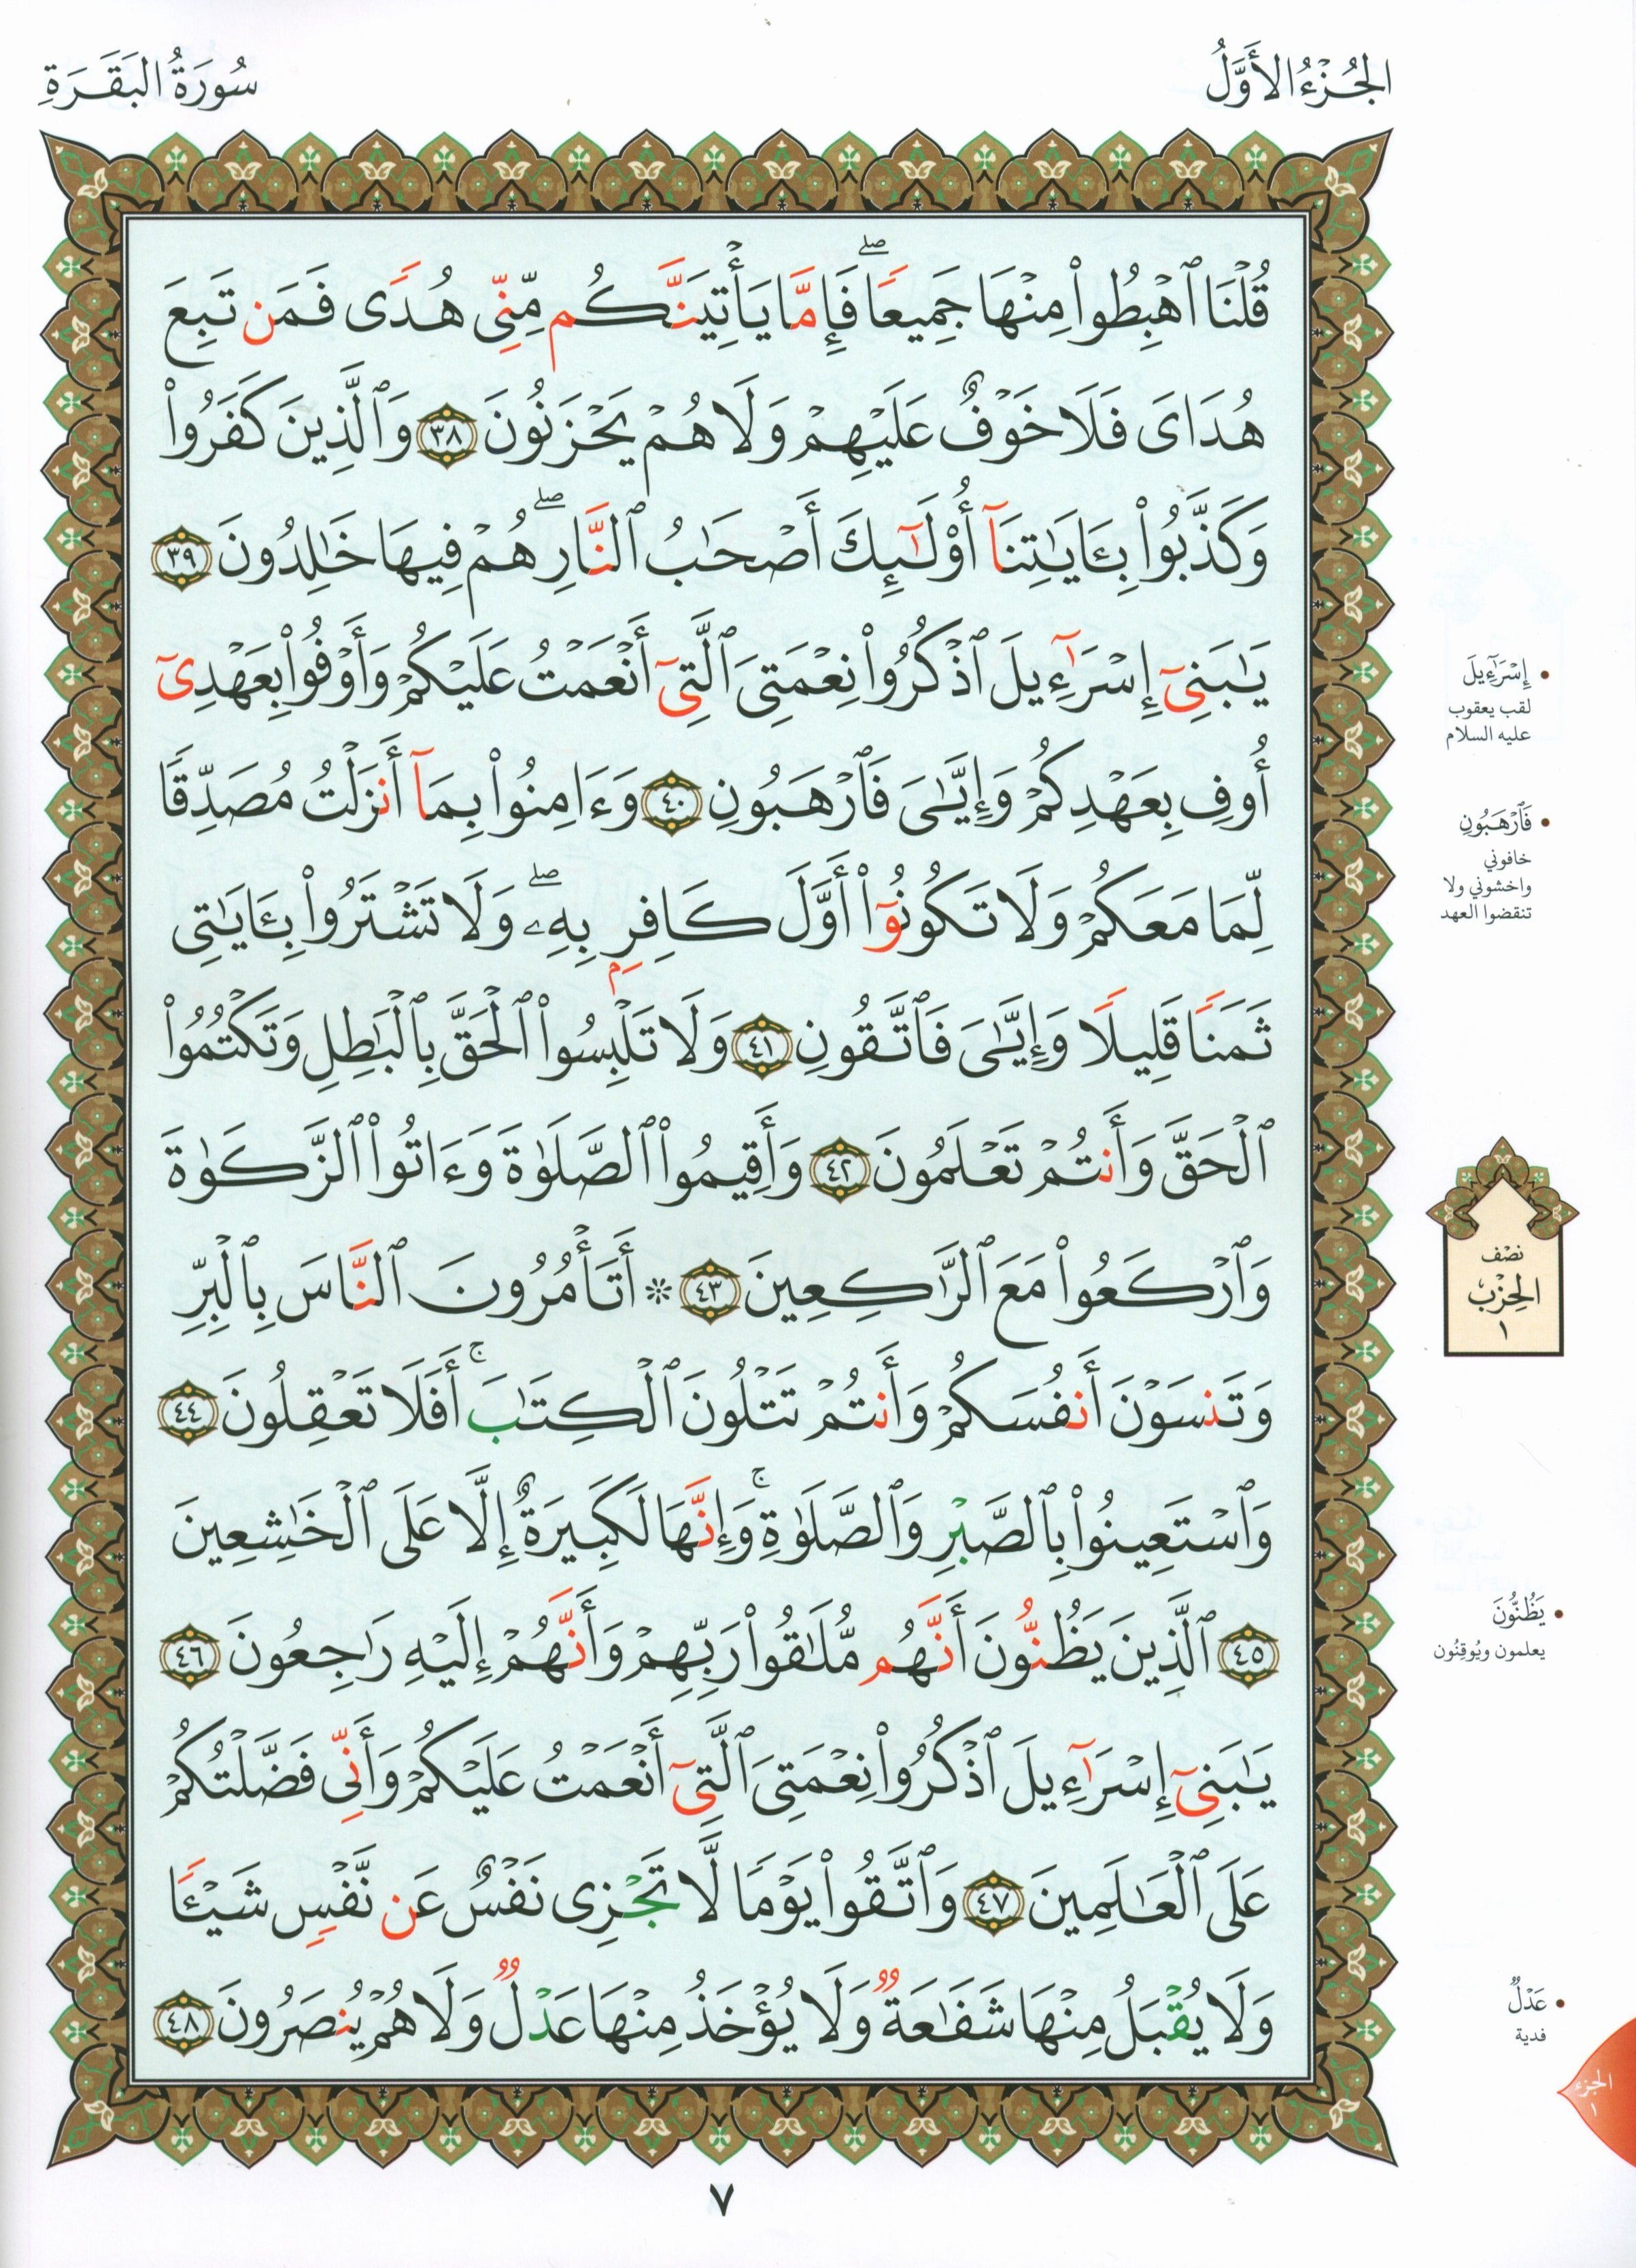 الجُزْءُ الأَوَّلُ
سُورَةُ البَقَرَةِ
قُلْنَا ٱهْبِطُوا۟ مِنْهَا جَمِيعًا ۖ فَإِمَّا يَأْتِيَنَّكُم مِّنِّى هُدًى فَمَن تَبِعَ
هُدَاىَ فَلَا خَوْفٌ عَلَيْهِمْ وَلَا هُمْ يَحْزَنُونَ ٣٨ وَٱلَّذِينَ كَفَرُوا۟
وَكَذَّبُوا۟ بِـَٔايَـٰتِنَآ أُو۟لَـٰٓئِكَ أَصْحَـٰبُ ٱلنَّارِ ۖ هُمْ فِيهَا خَـٰلِدُونَ ٣٩
يَـٰبَنِىٓ إِسْرَٰٓءِيلَ ٱذْكُرُوا۟ نِعْمَتِىَ ٱلَّتِىٓ أَنْعَمْتُ عَلَيْكُمْ وَأَوْفُوا۟ بِعَهْدِىٓ
أُوفِ بِعَهْدِكُمْ وَإِيَّـٰىَ فَٱرْهَبُونِ ٤٠ وَءَامِنُوا۟ بِمَآ أَنزَلْتُ مُصَدِّقًا
لِّمَا مَعَكُمْ وَلَا تَكُونُوٓا۟ أَوَّلَ كَافِرٍۭ بِهِۦ ۖ وَلَا تَشْتَرُوا۟ بِـَٔايَـٰتِى
ثَمَنًا قَلِيلًا وَإِيَّـٰىَ فَٱتَّقُونِ ٤١ وَلَا تَلْبِسُوا۟ ٱلْحَقَّ بِٱلْبَـٰطِلِ وَتَكْتُمُوا۟
ٱلْحَقَّ وَأَنتُمْ تَعْلَمُونَ ٤٢ وَأَقِيمُوا۟ ٱلصَّلَوٰةَ وَءَاتُوا۟ ٱلزَّكَوٰةَ
وَٱرْكَعُوا۟ مَعَ ٱلرَّٰكِعِينَ ٤٣ ۞ أَتَأْمُرُونَ ٱلنَّاسَ بِٱلْبِرِّ
وَتَنسَوْنَ أَنفُسَكُمْ وَأَنتُمْ تَتْلُونَ ٱلْكِتَـٰبَ ۚ أَفَلَا تَعْقِلُونَ ٤٤
وَٱسْتَعِينُوا۟ بِٱلصَّبْرِ وَٱلصَّلَوٰةِ ۚ وَإِنَّهَا لَكَبِيرَةٌ إِلَّا عَلَى ٱلْخَـٰشِعِينَ
٤٥ ٱلَّذِينَ يَظُنُّونَ أَنَّهُم مُّلَـٰقُوا۟ رَبِّهِمْ وَأَنَّهُمْ إِلَيْهِ رَٰجِعُونَ ٤٦
يَـٰبَنِىٓ إِسْرَٰٓءِيلَ ٱذْكُرُوا۟ نِعْمَتِىَ ٱلَّتِىٓ أَنْعَمْتُ عَلَيْكُمْ وَأَنِّى فَضَّلْتُكُمْ
عَلَى ٱلْعَـٰلَمِينَ ٤٧ وَٱتَّقُوا۟ يَوْمًا لَّا تَجْزِى نَفْسٌ عَن نَّفْسٍ شَيْـًٔا
وَلَا يُقْبَلُ مِنْهَا شَفَـٰعَةٌ وَلَا يُؤْخَذُ مِنْهَا عَدْلٌ وَلَا هُمْ يُنصَرُونَ ٤٨
إِسْرَٰٓءِيلَ
لقب يعقوب
عليه السلام
فَٱرْهَبُونِ
خافوني
واخشوني ولا
تنقضوا العهد
نصْف
الحِزْبُ
١
يَظُنُّونَ
يعلمون ويُوقِنُون
عَدْلٌ
فدية
الجزء
١
٧